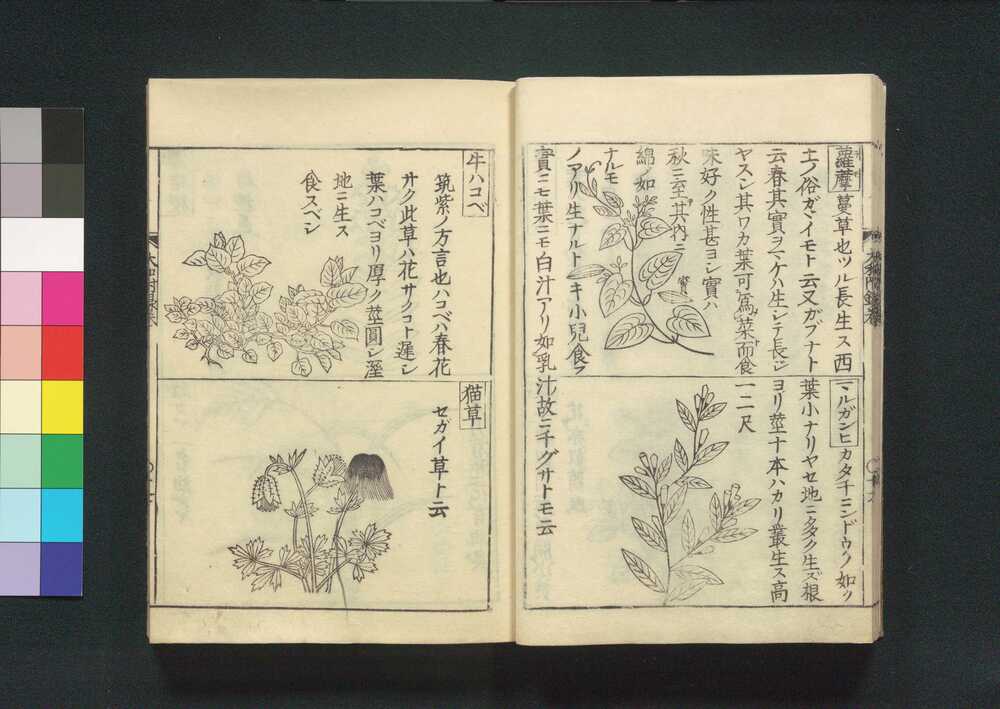 蘿藦 蔓草也ツル長生ス西
土ノ俗ガヾイモト云又ガブナト
云春其實ヲマケハ生シテ長シ
ヤスシ其ワカ葉可爲菜而食
味好ク性甚ヨシ實ハ
秋ニ至
其内ニ
綿ノ如
ナルモ
ノアリ生ナルトキ小兒食フ
實ニモ葉ニモ白汁アリ如乳汁故ニチグサトモ云
實
マルガンヒ カタチミシドウノ如ク
葉小ナリヤセ地ニ多ク生ズ根
ヨリ莖十本ハカリ叢生ス高
一二尺
牛ハコベ
筑紫ノ方言也ハコベハ春花
サク此草ハ花サクコト遲シ
葉ハコベヨリ厚ク莖圓シ溼
地ニ生ス
食スベシ
猫草
セガイ草ト云